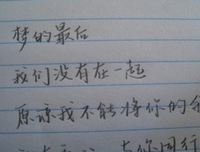 梦的最后
我们没有在一起
原谅我不能将你的
你同行